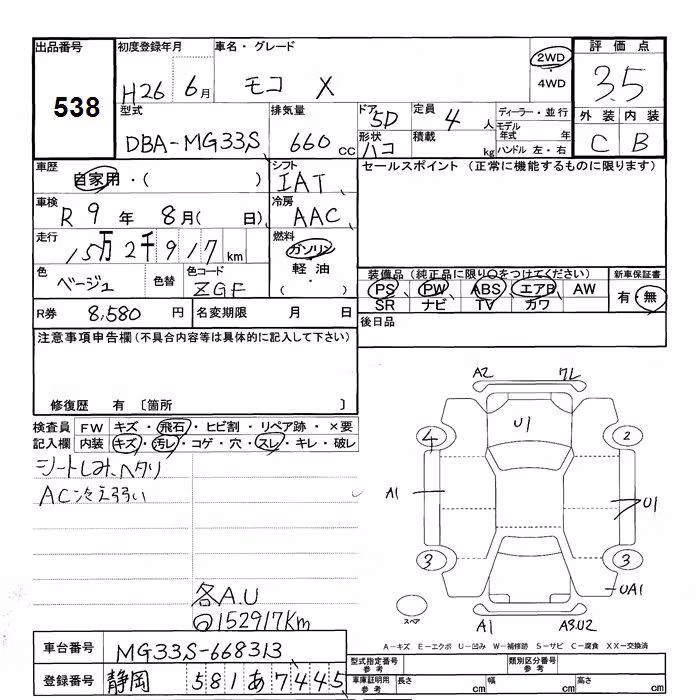 出品番号 初度登録年月 車名・グレード 評価点
538 H26 6月 モコ X 2WD・4WD 3.5
外装 内装
C B
型式 排気量 ドア 定員 ディーラー・並行
DBA-MG33S 660cc 5D 4人 モデル年式 年
形状 積載 ハンドル 左・右
ハコ kg
車歴 シフト セールスポイント (正常に機能するものに限ります)
自家用・( ) IAT
車検 冷房
R9年 8月( 日) AAC
走行 燃料
15万2千917km ガソリン
軽油
( ・ )
色 色替 色コード 装備品(純正品に限り○をつけてください) 新車保証書
ベージュ ZGF PS PW ABS エアB AW 有・無
SR ナビ TV カワ
R券 8,580円 名変期限 月 日 後日品
注意事項申告欄(不具合内容等は具体的に記入して下さい)
修復歴 有 〔箇所 〕
A2 ワレ
U1
4 2
A1 U1
3 3
UA1
スペア
A1 A3.U2
検査員 FW キズ・飛石・ヒビ割・リペア跡・×要
記入欄 内装 キズ・汚レ・コゲ・穴・スレ・キレ・破レ
シートしみ、ヘタリ
AC冷え弱い
各A.U
152917Km
A-キズ E-エクボ U-凹み W-補修跡 S-サビ C-腐食 XX-交換済
車台番号 MG33S-668313
型式指定番号 参考 類別区分番号 参考
登録番号 静岡 581あ7445
車庫証明用 参考 長さ cm 幅 cm 高さ cm